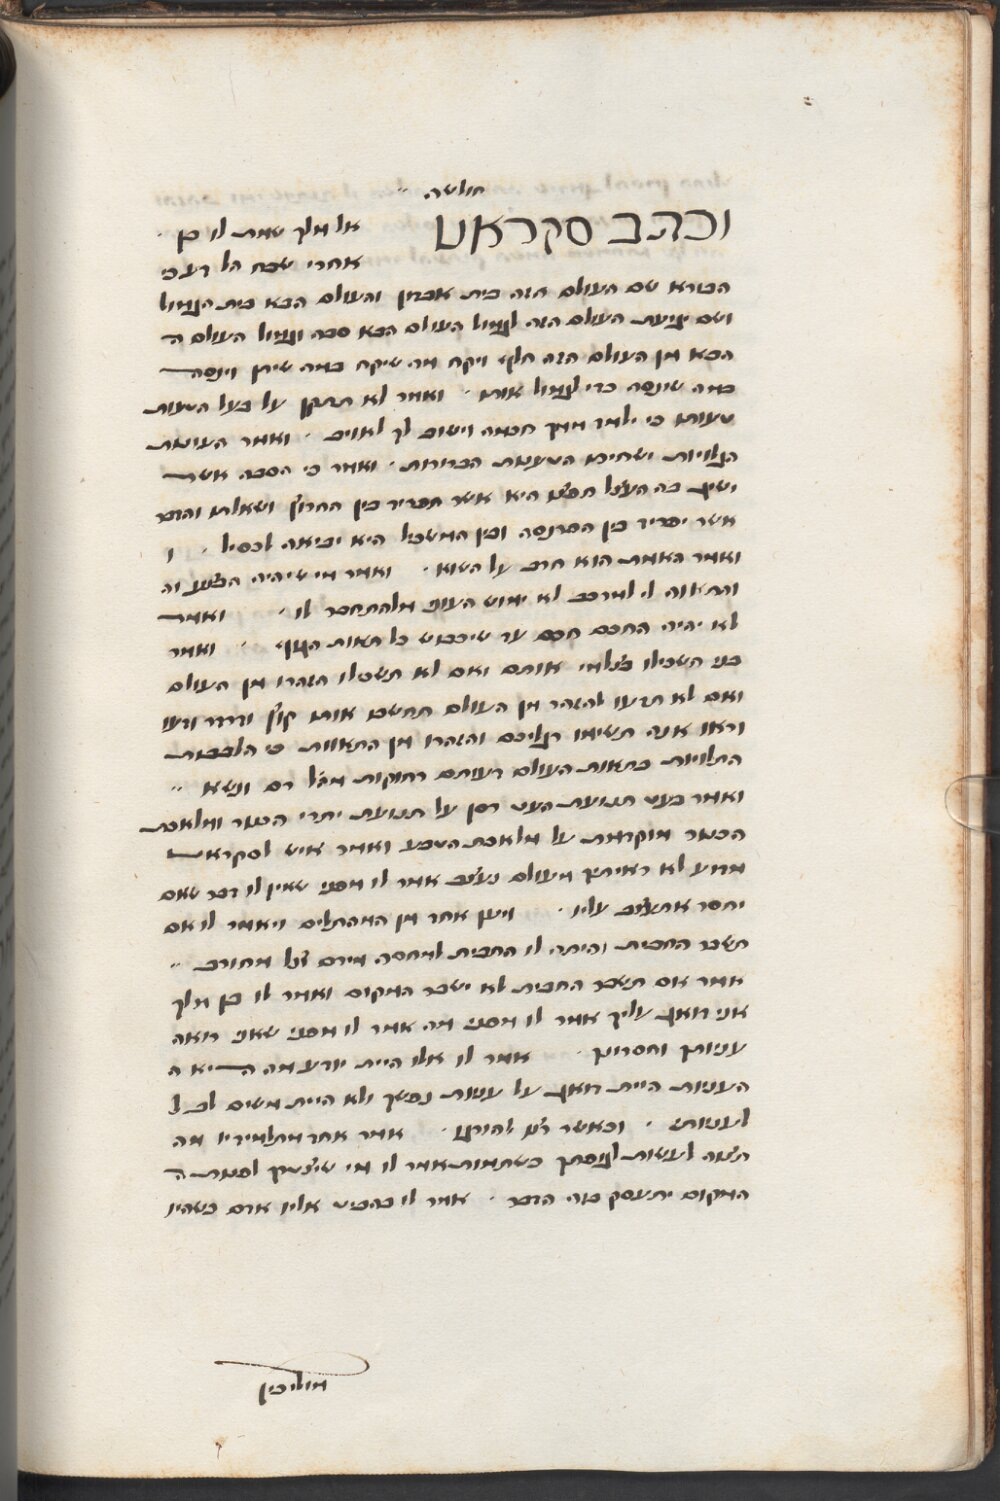 חולשה
וכתב סקראט אל מלך שמת לו בן
אחרי שבח הל רע כי
הבורא שם העולם הזה בית אבדון והעולם הבא בית הגמול
ושם יגיעת העולם הזה לגמול העולם הבא סבה וגמול העולם ה
הבא מן העולם הזה חלף ויקח מה שיקח במה שיתן וינסה
במה שינסה כדי לגמול אותו ואמר לא תתקן על בעל הטעות
טעותו כי ילמד ממך חכמה וישוב לך לאויב ואמר העושות
הגלויות ישחיתו הטענות הברורות ואמר כי הסבה אשר
ישיג בה העצל חפצו היא אשר תפריד בין החרוץ ושאלתו והדבר
אשר יפריד בין הפרנסה ובין המשכיל היא יביאה לכסיל ו
ואמר האמת הוא חרב על השוא ואמר מי שיהיה הכעס וה
והתאוה לו למרכב לא ימוש העוני מלהתחבר לו ואמר
לא יהיה החכם חכם עד שיכבוש כל תאות הגוף ואמר
בני השכילו בצלמי אותם ואם לא תשכילו הזהרו מן העולם
ואם לא תדעו להזהר מן העולם תחשבו אותו קוץ ודרדר ודעו
וראו אנה תשימו רגליכם והזהרו מן התאוות כי הלבבות
התלויות בתאות העולם דעותם רחוקות מהל רם ונשא
ואמר בעט תנועת העט רסן על תנועת יתרי הכנור ומלאכת
הכנור מוקדמת על מלאכת הטבע ואמר איש לסקראט
מדוע לא ראיתיך מעולם נעצב אמר לו מפני שאין לו דבר שאם
יחסר אתעצב עליו ויען אחד מן המהתלים ויאמר לו אם
תשבר החבית והיתה לו החבית למחסה מזרם וצל מחורב
אמר אם תשבר החבית לא ישבר המקום ואמר לו בן מלך
אני דואג עליך אמר לו מפני מה אמר לו מפני שאני רואה
עניותך וחסרונך אמר לו אלו היית יודע מה היא ה
העניות היית דואג על עניות נפשך ולא היית משים לב ל
לעניותי וכאשר רצו להורגו אמר אחד מתלמידיו מה
תצוה לעשות לגופתך כשתמות אמר לו מי שיצטרך לפנות ה
המקום יתעסק בזה הדבר אמר לו בהביט אליו אדם כשהיו
מוליכין